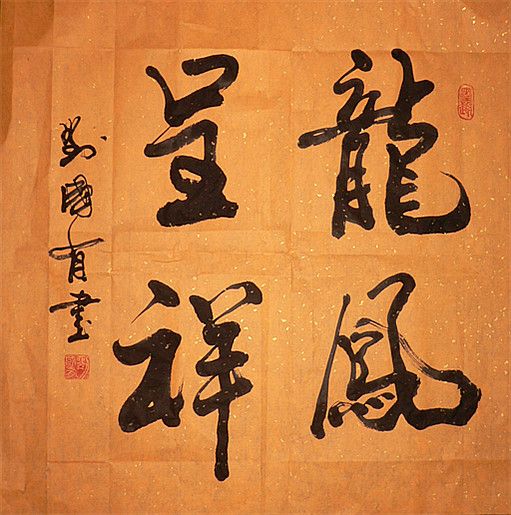 龍鳳
呈祥
劉國有書